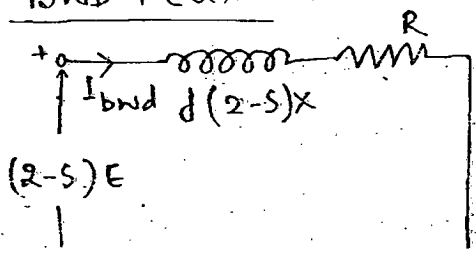 R
+
I bwd d(2-S)X
(2-S)E